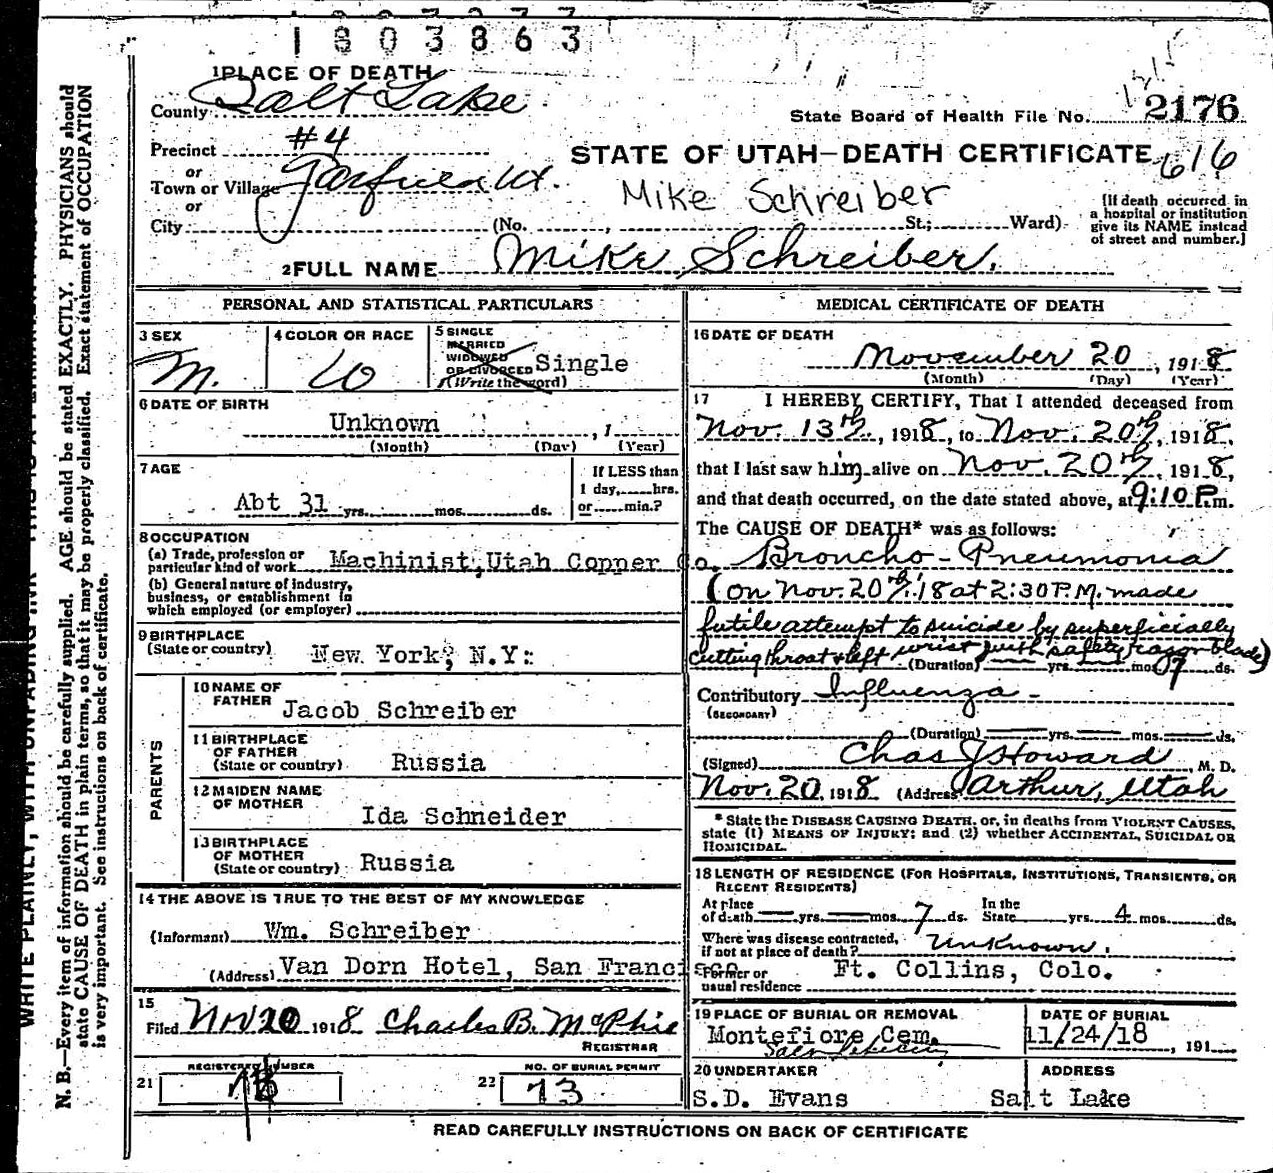 1803863
1 PLACE OF DEATH
County Salt Lake
State Board of Health File No. 2176
Precinct #4
STATE OF UTAH—DEATH CERTIFICATE 616
or
Town or Village Garfield Ut.
Mike Schreiber
or
City (No. , St.; Ward)
[If death occurred in
a hospital or institution
give its NAME instead
of street and number.]
2 FULL NAME Mike Schreiber.
PERSONAL AND STATISTICAL PARTICULARS
3 SEX
M.
4 COLOR OR RACE
W
5 SINGLE
MARRIED
WIDOWED
OR DIVORCED Single
(Write the word)
6 DATE OF BIRTH
Unknown , 1
(Month) (Day) (Year)
7 AGE
Abt 31 yrs. mos. ds.
If LESS than
1 day, hrs.
or min.?
8 OCCUPATION
(a) Trade, profession or
particular kind of work Machinist, Utah Copper Co.
(b) General nature of industry,
business, or establishment in
which employed (or employer)
9 BIRTHPLACE
(State or country) New York, N.Y.
PARENTS
10 NAME OF
FATHER Jacob Schreiber
11 BIRTHPLACE
OF FATHER
(State or country) Russia
12 MAIDEN NAME
OF MOTHER Ida Schneider
13 BIRTHPLACE
OF MOTHER
(State or country) Russia
14 THE ABOVE IS TRUE TO THE BEST OF MY KNOWLEDGE
(Informant) Wm. Schreiber
(Address) Van Dorn Hotel, San Francisco
15
Filed Nov 20 1918 Charles B. McPhie
REGISTRAR
REGISTERED NUMBER
21
NO. OF BURIAL PERMIT
22 73
MEDICAL CERTIFICATE OF DEATH
16 DATE OF DEATH
November 20, 1918
(Month) (Day) (Year)
17 I HEREBY CERTIFY, That I attended deceased from
Nov. 13th, 1918, to Nov. 20th, 1918,
that I last saw him alive on Nov. 20th, 1918,
and that death occurred, on the date stated above, at 9:10 P.m.
The CAUSE OF DEATH* was as follows:
Broncho-Pneumonia
(on Nov. 20th '18 at 2:30 P.M. made
futile attempt to suicide by superficially
cutting throat & left wrist with safety razor blade)
(Duration) yrs. mos. 7 ds.
Contributory Influenza
(SECONDARY)
(Duration) yrs. mos. ds.
(Signed) Chas J Howard, M. D.
Nov. 20, 1918 (Address) Arthur, Utah
* State the DISEASE CAUSING DEATH, or, in deaths from VIOLENT CAUSES,
state (1) MEANS OF INJURY; and (2) whether ACCIDENTAL, SUICIDAL OR
HOMICIDAL.
18 LENGTH OF RESIDENCE (FOR HOSPITALS, INSTITUTIONS, TRANSIENTS, OR
RECENT RESIDENTS)
At place In the
of death yrs. mos. 7 ds. State yrs. 4 mos. ds.
Where was disease contracted,
if not at place of death? Unknown.
Former or
usual residence Ft. Collins, Colo.
19 PLACE OF BURIAL OR REMOVAL
Montefiore Cem.
DATE OF BURIAL
11/24/18, 191
20 UNDERTAKER
S.D. Evans
ADDRESS
Salt Lake
READ CAREFULLY INSTRUCTIONS ON BACK OF CERTIFICATE
WRITE PLAINLY, WITH UNFADING INK
N. B.—Every item of information should be carefully supplied. AGE should be stated EXACTLY. PHYSICIANS should
state CAUSE OF DEATH in plain terms, so that it may be properly classified. Exact statement of OCCUPATION
is very important. See instructions on back of certificate.